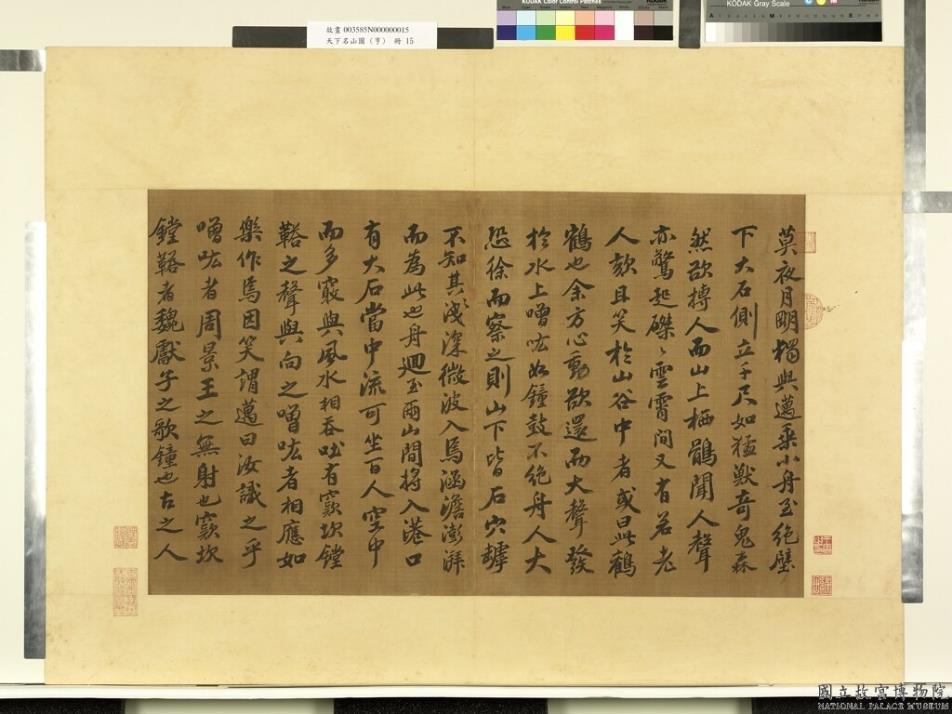 KODAK Color Control Patches
KODAK Gray Scale
故畫 003585N000000015
天下名山圖（亨） 冊 15
莫夜月明獨與邁乘小舟至絕壁
下大石側立千尺如猛獸奇鬼森
然欲搏人而山上栖鶻聞人聲
亦驚起磔〻雲霄間又有若老
人欬且笑於山谷中者或曰此鶴
鶴也余方心動欲還而大聲發
於水上噌吰如鐘鼓不絕舟人大
恐徐而察之則山下皆石穴罅
不知其淺深微波入焉涵澹澎湃
而為此也舟迴至兩山間將入港口
有大石當中流可坐百人空中
而多竅與風水相吞吐有窾坎鏜
鞳之聲與向之噌吰者相應如
樂作焉因笑謂邁曰汝識之乎
噌吰者周景王之無射也窾坎
鏜鞳者魏獻子之歌鐘也古之人
國立故宮博物院
NATIONAL PALACE MUSEUM